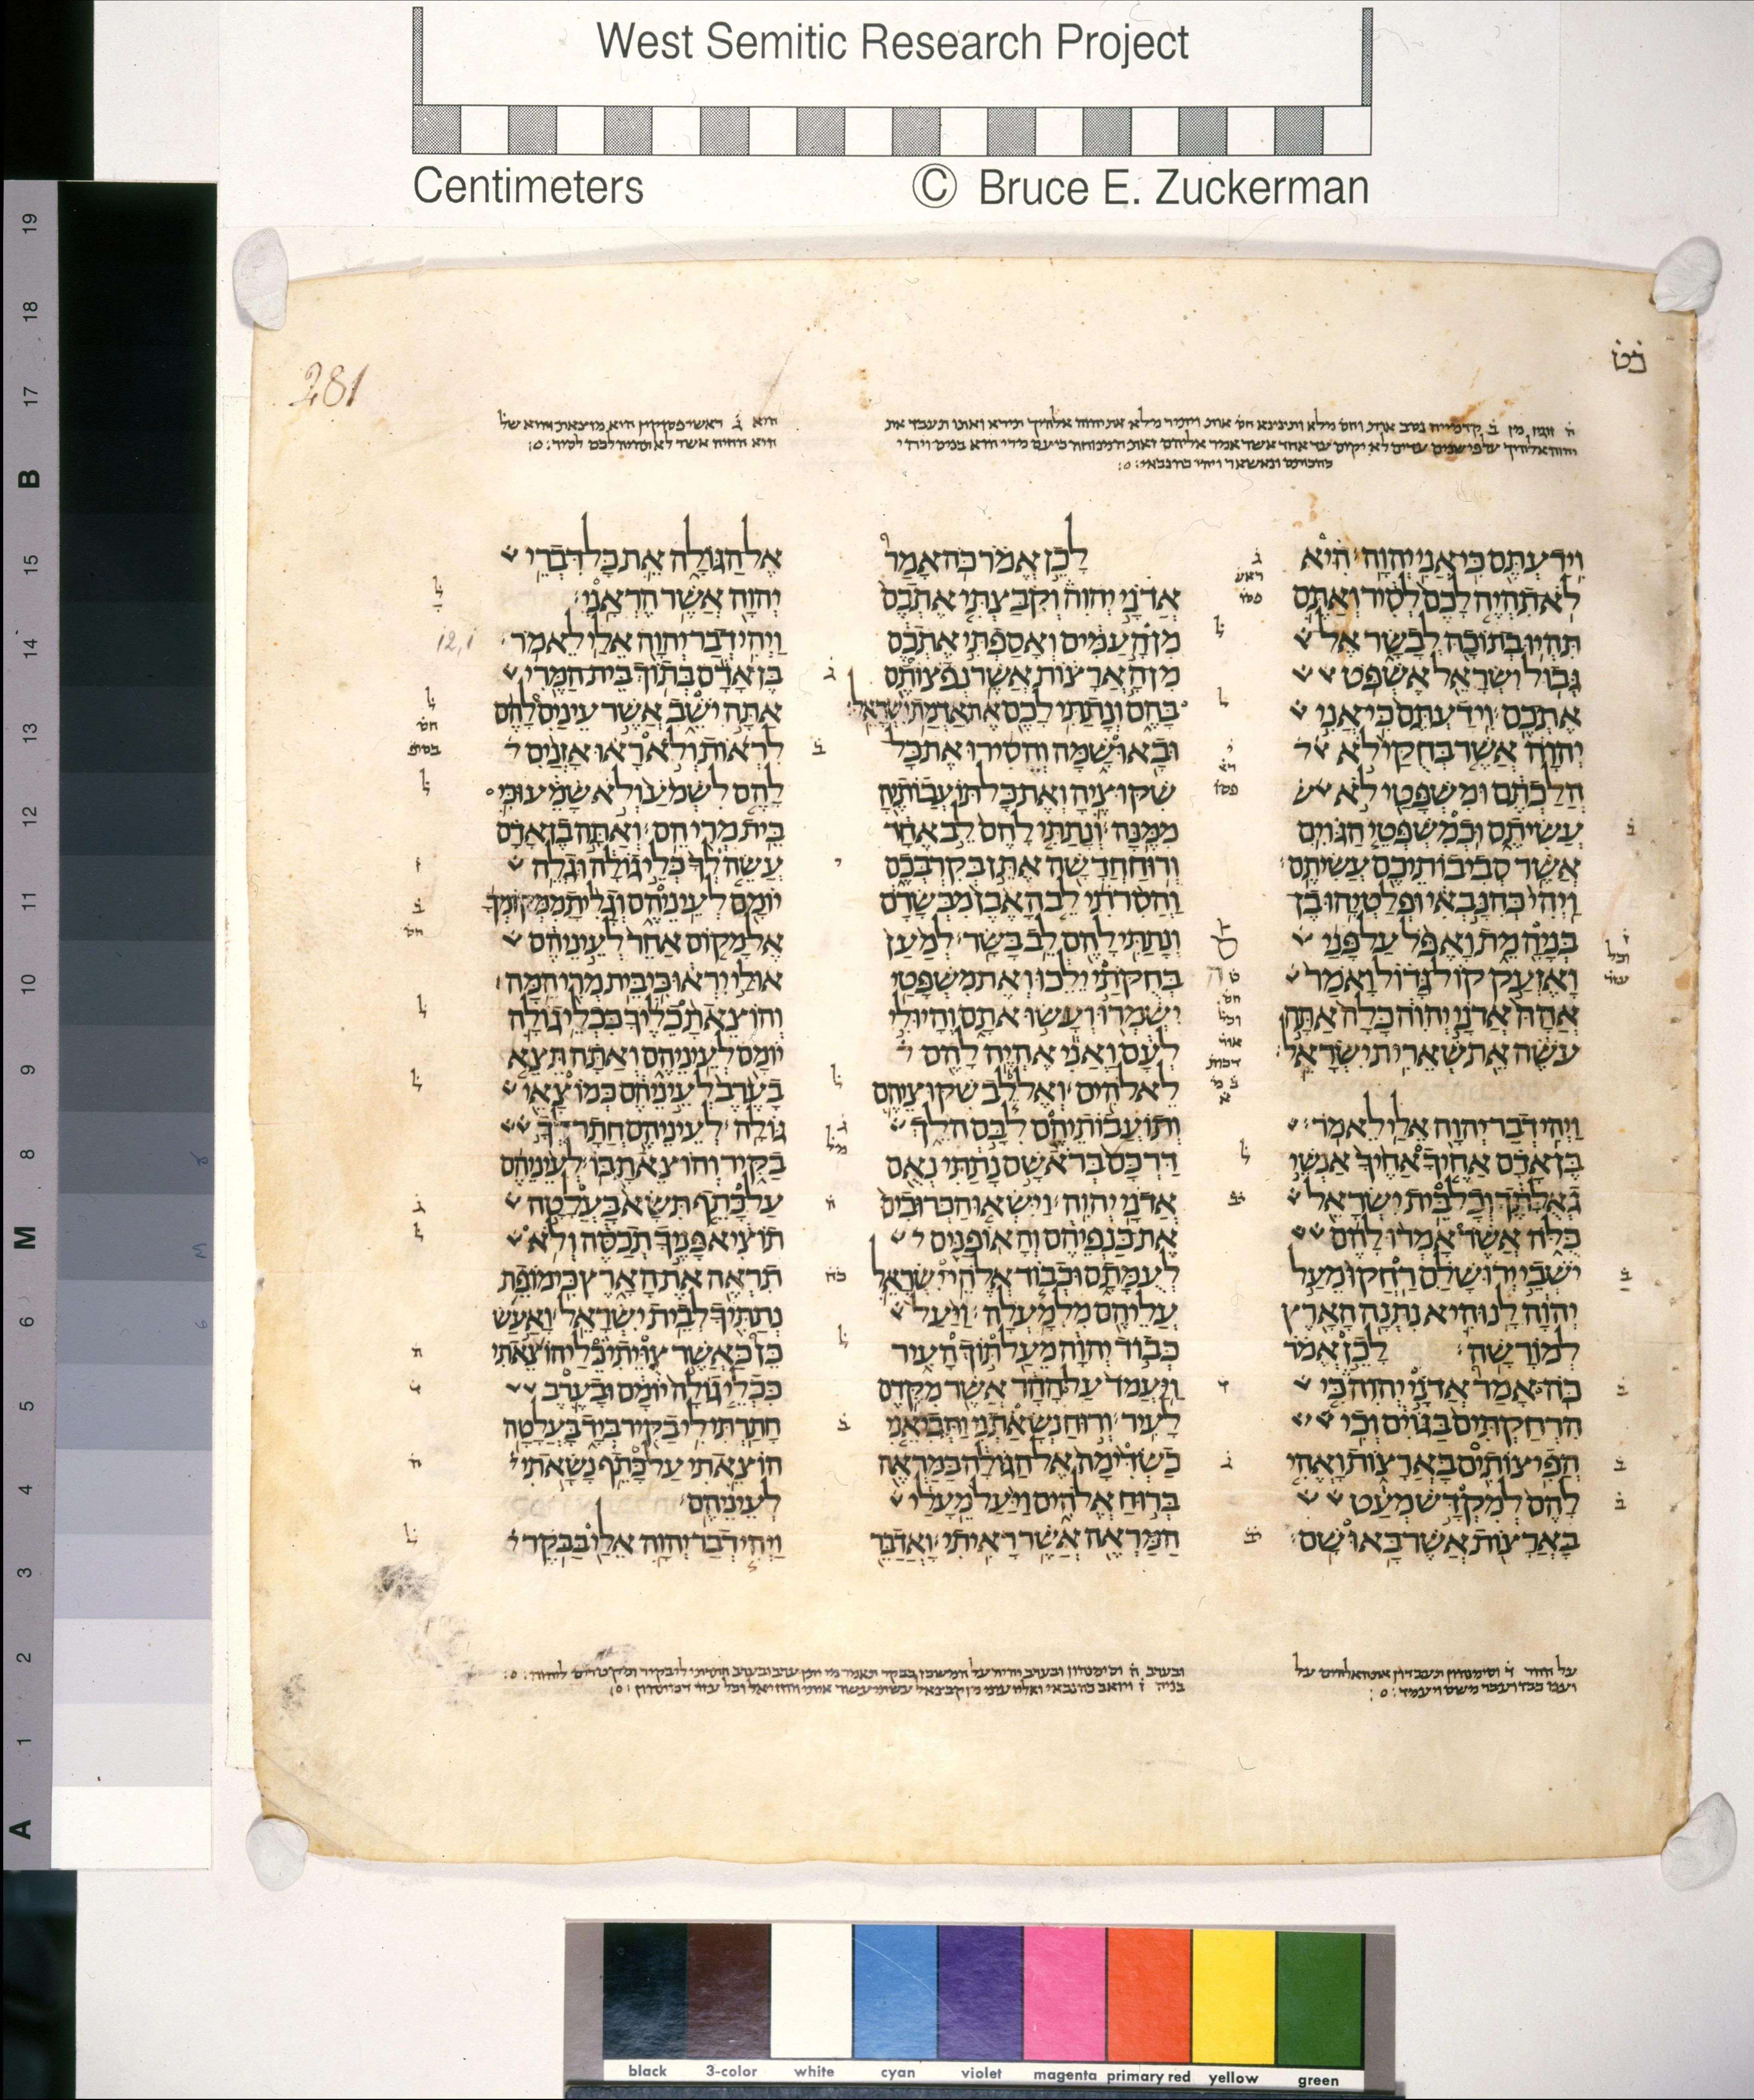 West Semitic Research Project
Centimeters
© Bruce E. Zuckerman
281
כט
וידעתם כי אני יהוה היא
לא תהיה לכם לסיר ואתם
תהיו בתוכה לבשר אל
גבול ישראל אשפט
אתכם וידעתם כי אני
יהוה אשר בחקי לא
הלכתם ומשפטי לא
עשיתם וכמשפטי הגוים
אשר סביבותיכם עשיתם
ויהי כהנבאי ופלטיהו בן
בניה מת ואפל על פני
ואזעק קול גדול ואמר
אהה אדני יהוה כלה אתה
עשה את שארית ישראל
ויהי דבר יהוה אלי לאמר
בן אדם אחיך אחיך אנשי
גאלתך וכל בית ישראל
כלה אשר אמרו להם
ישבי ירושלם רחקו מעל
יהוה לנו היא נתנה הארץ
למורשה לכן אמר
כה אמר אדני יהוה כי
הרחקתים בגוים וכי
הפיצותים בארצות ואהי
להם למקדש מעט
בארצות אשר באו שם
לכן אמר כה אמר
אדני יהוה וקבצתי אתכם
מן העמים ואספתי אתכם
מן הארצות אשר נפצותם
בהם ונתתי לכם את אדמת ישראל
ובאו שמה והסירו את כל
שקוציה ואת כל תועבותיה
ממנה ונתתי להם לב אחד
ורוח חדשה אתן בקרבכם
והסרתי לב האבן מבשרם
ונתתי להם לב בשר למען
בחקתי ילכו ואת משפטי
ישמרו ועשו אתם והיו לי
לעם ואני אהיה להם
לאלהים ואל לב שקוציהם
ותועבותיהם לבם הלך
דרכם בראשם נתתי נאם
אדני יהוה וישאו הכרובים
את כנפיהם והאופנים
לעמתם וכבוד אלהי ישראל
עליהם מלמעלה ויעל
כבוד יהוה מעל תוך העיר
ויעמד על ההר אשר מקדם
לעיר ורוח נשאתני ותביאני
כשדימה אל הגולה במראה
ברוח אלהים ויעל מעלי
המראה אשר ראיתי ואדבר
אל הגולה את כל דברי
יהוה אשר הראני
ויהי דבר יהוה אלי לאמר
12,1
בן אדם בתוך בית המרי
אתה ישב אשר עינים להם
לראות ולא ראו אזנים
להם לשמע ולא שמעו כי
בית מרי הם ואתה בן אדם
עשה לך כלי גולה וגלה
יומם לעיניהם וגלית ממקומך
אל מקום אחר לעיניהם
אולי יראו כי בית מרי המה
והוצאת כליך ככלי גולה
יומם לעיניהם ואתה תצא
בערב לעיניהם כמוצאי
גולה לעיניהם חתר לך
בקיר והוצאת בו לעיניהם
על כתף תשא בעלטה
תוציא פניך תכסה ולא
תראה את הארץ כי מופת
נתתיך לבית ישראל ואעש
כן כאשר צויתי כלי הוצאתי
ככלי גולה יומם ובערב
חתרתי לי בקיר ביד בעלטה
הוצאתי על כתף נשאתי
לעיניהם
ויהי דבר יהוה אלי בבקר
A 1 2 3 4 5 6 M 8 9 10 11 12 13 14 15 B 17 18 19
black 3-color white cyan violet magenta primary red yellow green